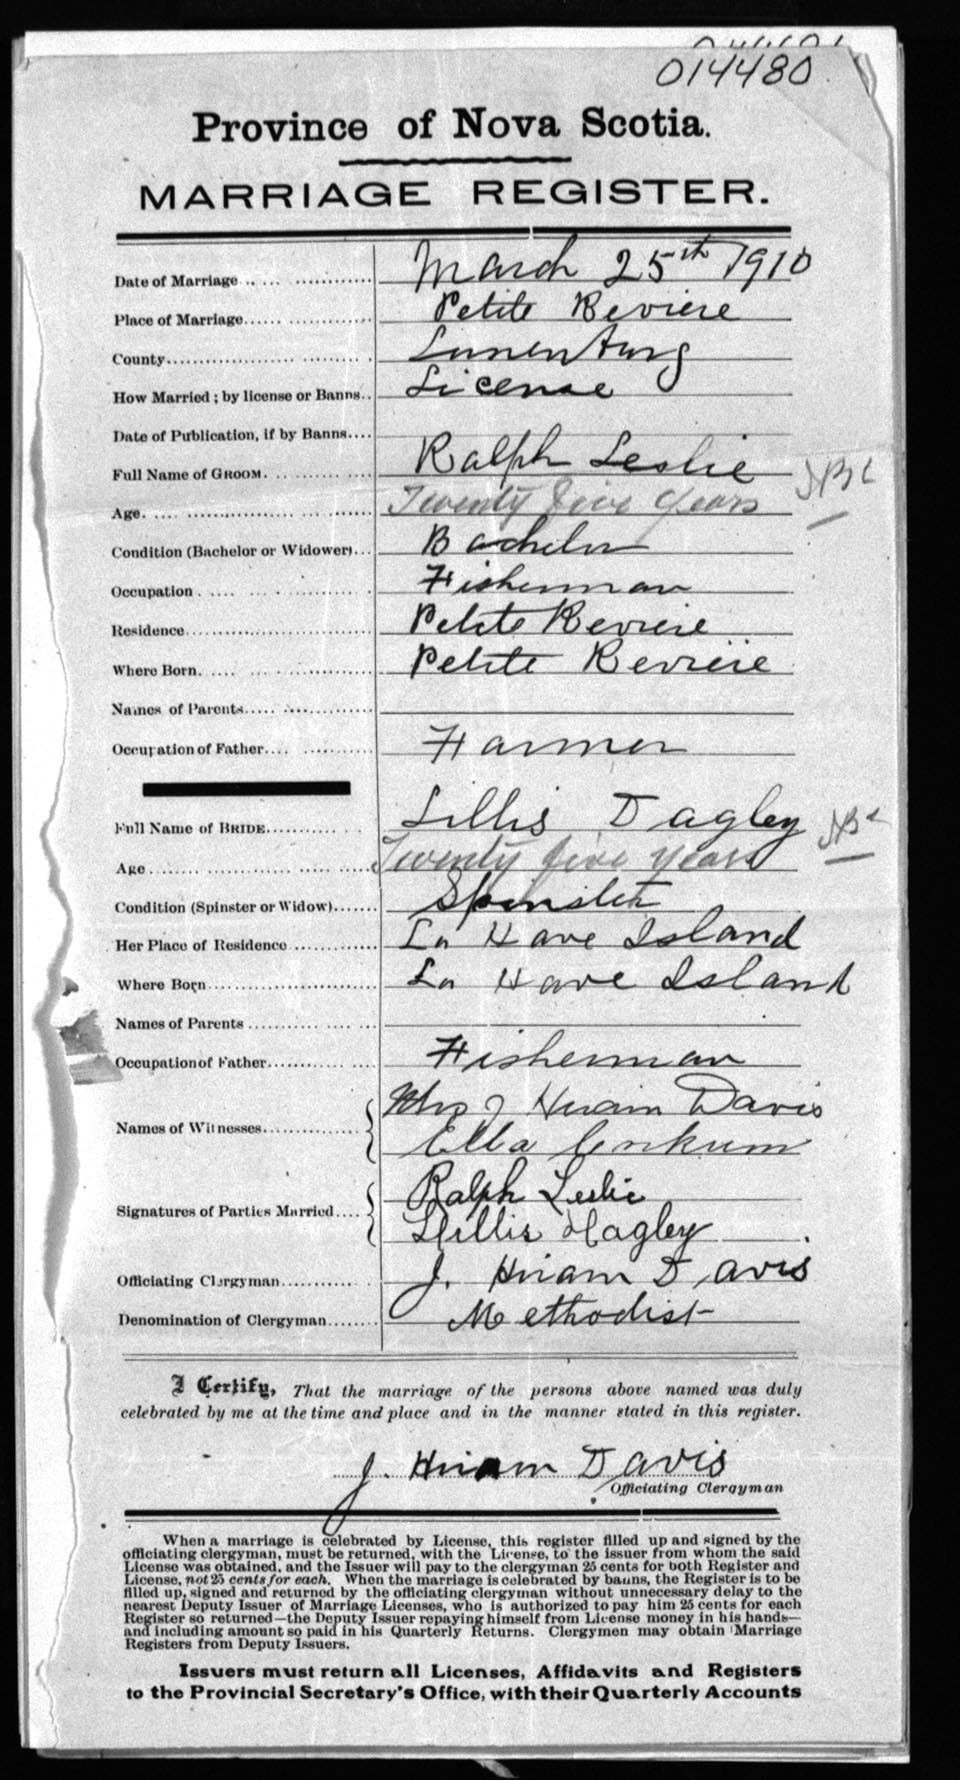 014480
Province of Nova Scotia.
MARRIAGE REGISTER.
Date of Marriage March 25th 1910
Place of Marriage Petite Reviere
County Lunenburg
How Married ; by license or Banns License
Date of Publication, if by Banns
Full Name of GROOM Ralph Leslie
Age Twenty five years
Condition (Bachelor or Widower) Bachelor
Occupation Fisherman
Residence Petite Reviere
Where Born Petite Reviere
Names of Parents
Occupation of Father Farmer
Full Name of BRIDE Lillis Dagley
Age Twenty five years
Condition (Spinster or Widow) Spinster
Her Place of Residence La Have Island
Where Born La Have Island
Names of Parents
Occupation of Father Fisherman
Names of Witnesses Mrs J Hiram Davis
Ella
Signatures of Parties Married Ralph Leslie
Lillis Dagley
Officiating Clergyman J. Hiram Davis
Denomination of Clergyman Methodist
I Certify, That the marriage of the persons above named was duly
celebrated by me at the time and place and in the manner stated in this register.
J. Hiram Davis
Officiating Clergyman
When a marriage is celebrated by License, this register filled up and signed by the
officiating clergyman, must be returned, with the License, to the issuer from whom the said
License was obtained, and the Issuer will pay to the clergyman 25 cents for both Register and
License, not 25 cents for each. When the marriage is celebrated by banns, the Register is to be
filled up, signed and returned by the officiating clergyman without unnecessary delay to the
nearest Deputy Issuer of Marriage Licenses, who is authorized to pay him 25 cents for each
Register so returned—the Deputy Issuer repaying himself from License money in his hands—
and including amount so paid in his Quarterly Returns. Clergymen may obtain Marriage
Registers from Deputy Issuers.
Issuers must return all Licenses, Affidavits and Registers
to the Provincial Secretary's Office, with their Quarterly Accounts